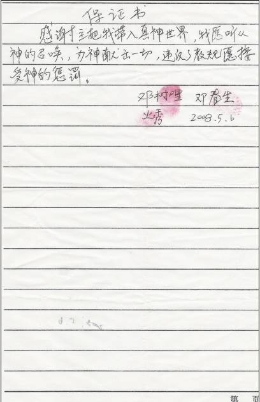 保证书
感谢主把我带入真神世界，我愿听从
神的召唤，为神献出一切，违反了教规愿接
受神的惩罚。
邓树生 邓春生
火秀 2008.5.6
第 页